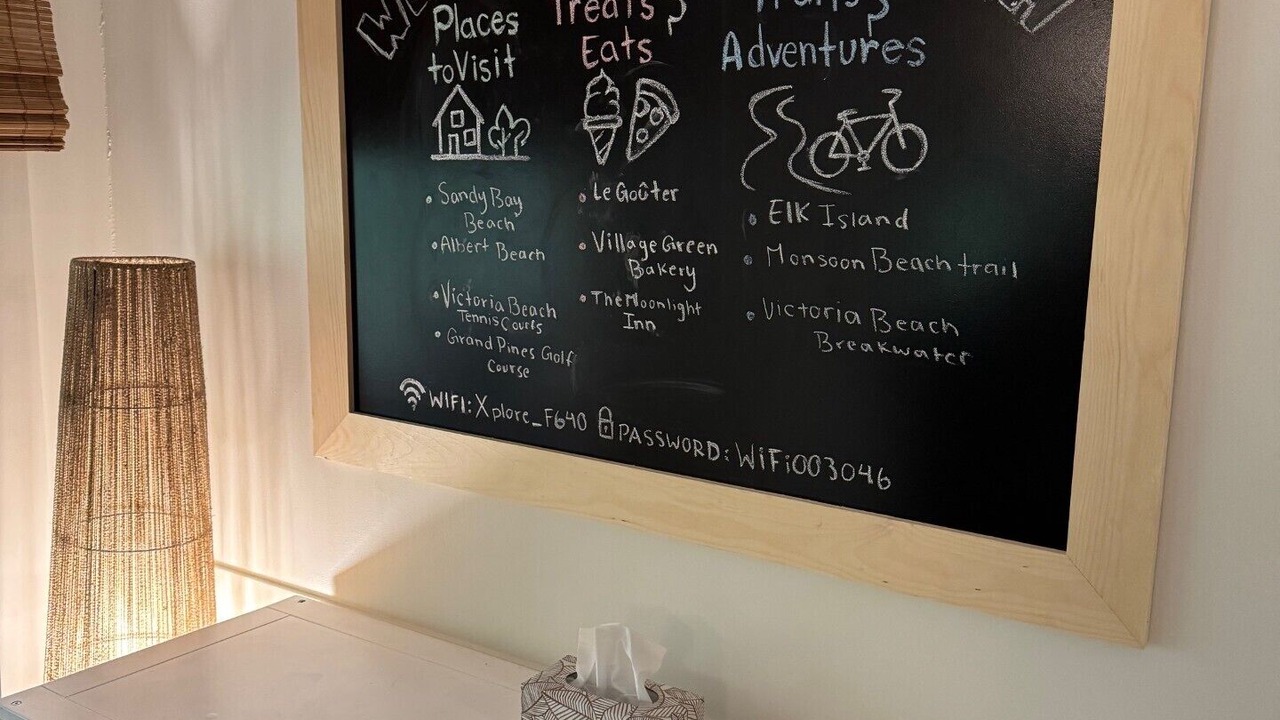 Places
to Visit
• Sandy Bay
Beach
• Albert Beach
• Victoria Beach
Tennis Courts
• Grand Pines Golf
Course
Treats &
Eats
• Le Goûter
• Village Green
Bakery
• The Moonlight
Inn
Trails &
Adventures
• Elk Island
• Monsoon Beach trail
• Victoria Beach
Breakwater
WIFI: Xplore_F640 PASSWORD: WiFi003046